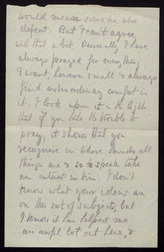 would mean someone else
defeat. But I can't agree
with that a bit. Personally, I have
always prayed for everything
I want, however small & always
find extraordinary comfort in
it. I look upon it in the light
that if you take the trouble to
pray, it shows that you
recognise in whose hands all
things are & so to speak take
an interest in Him. I don't
know what your ideas are
on this sort of subject, but
I know it has helped me
an awful lot out here, &